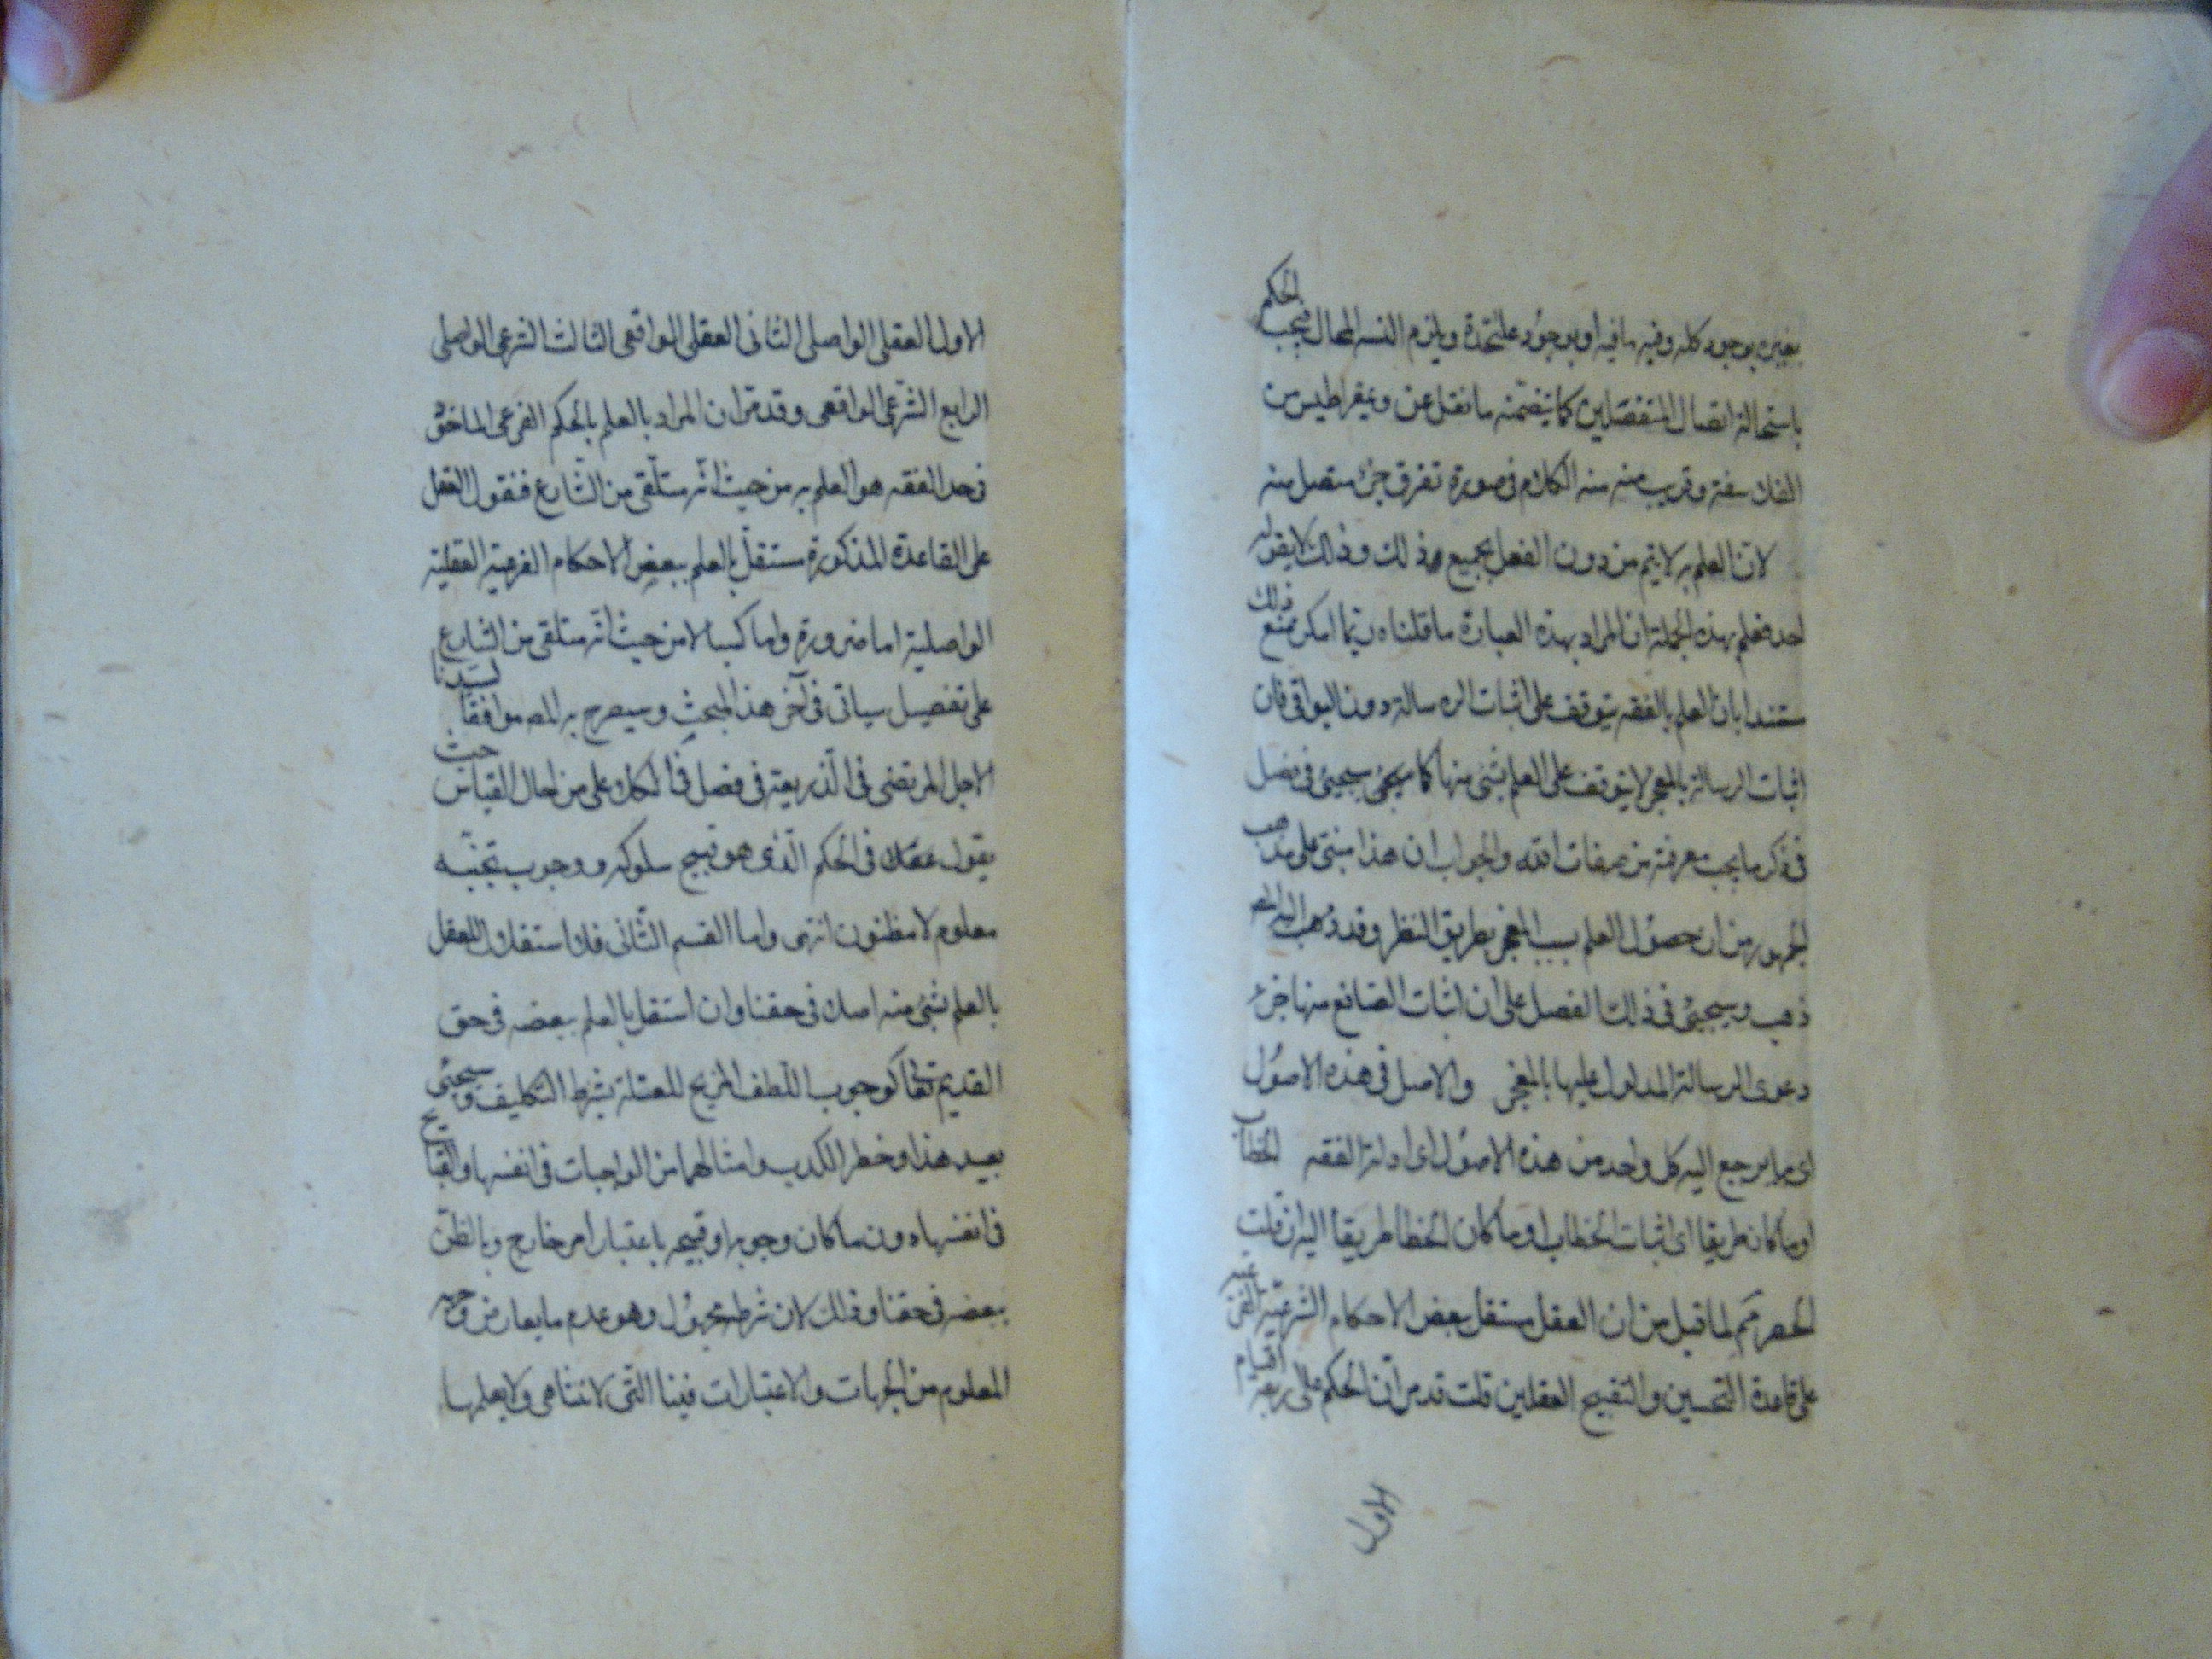 بغيره بوجود كله وفيه ما فيه او بوجود علتحدة ويلزم التسـ المحال فيجب الحكم
باستحالة اتصال المنفصلين كما يتضمنه ما نقل عن ذيمقراطيس من
الفلاسفة وقريب منه منه الكلام في صورة تفرق جزء متصل منه
لانا العلم به لا يتم من دون الفعل بجميع ذلك وذلك لا يقول به
احد فعلم بهذه الجملة ان المراد بهذه العبارة ما قلناه ربما امكن تمنع ذلك
مستندا بان العلم بالفقه يتوقف على اثبات الرسالة دون البواقي فان
اثبات الرسالة بالمعجز لا يتوقف على العلم بشئ منها كما سيجئ في فصل
في ذكر ما يجب معرفته من صفات الله والجواب ان هذا مبنى على مذهب
الجمهور من ان حصول العلم بسبب المعجز بطريق النظر وقد ذهب اليه المصـ
ذهب وسيجئ في ذلك الفصل على ان اثبات الصانع منها
دعوى الرسالة المدلول عليها بالمعجز والاصل في هذه الاصول
اى ما يرجع اليه كل واحد من هذه الاصول اى ادلة الفقه الخطاب
او ما كان طريقا اى اثبات الخطاب او ما كان الخطا طريقا اليه ان قلت
الحصر مم لما قيل من ان العقل مستقل ببعض الاحكام الشرعية الفرعية
على قاعدة التحسين والتقبيح العقلين قلت قد مر ان الحكم على اربعة اقسام
الاول
الاول العقلى الواصلى الثانى العقلى الواقعى الثالث الشرعى الواصلى
الرابع الشرعى الواقعى وقد مر ان المراد بالعلم بالحكم الفرعى الماخوذ
في حد الفقه هو العلم به من حيث انه متلقى من الشارع فنقول العقل
على القاعدة المذكورة مستقل بالعلم ببعض الاحكام الفرعية العقلية
الواصلية اما ضرورة واما كسبا لا من حيث انه متلقى من الشارع
على تفصيل سياتى في آخر هذا المبحث وسيصرح به المصـ موافقا لسيدنا
الاجل المرتضى في الذريعة في فصل في الكلام على من احال القياس حيث
يقول عقلا في الحكم الذى هو قبيح سلوكه ووجوب تجنبه
معلوم لا مظنون انتهى واما القسم الثانى فلا استقلال للعقل
بالعلم بشئ منه اصلا في حقنا وان استقل بالعلم ببعضه في حق
القديم تعالى كوجوب اللطف المزيح للعلة بشرط التكليف وسيجئ
بعيد هذا وخطر الكذب وامثالهما من الواجبات في انفسها والقبايح
في انفسها دون ما كان وجوبه او قبحه باعتبار امر خارج وبالظن
ببعضه في حقنا وذلك لان شرطه مجهول وهو عدم ما يعارض
المعلوم من الجهات والاعتبارات فينا التى لا تتناهى ولا يعلمها